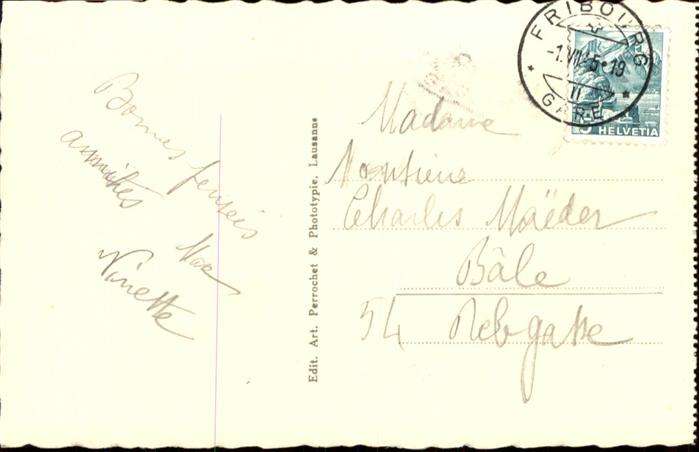 Bonnes pensées
amitiés
Ninette
Edit. Art. Perrochet & Phototypie, Lausanne
FRIBOURG
GARE
HELVETIA
Madame
Monsieur
Charles Maëder
Bâle
54 Rebgasse